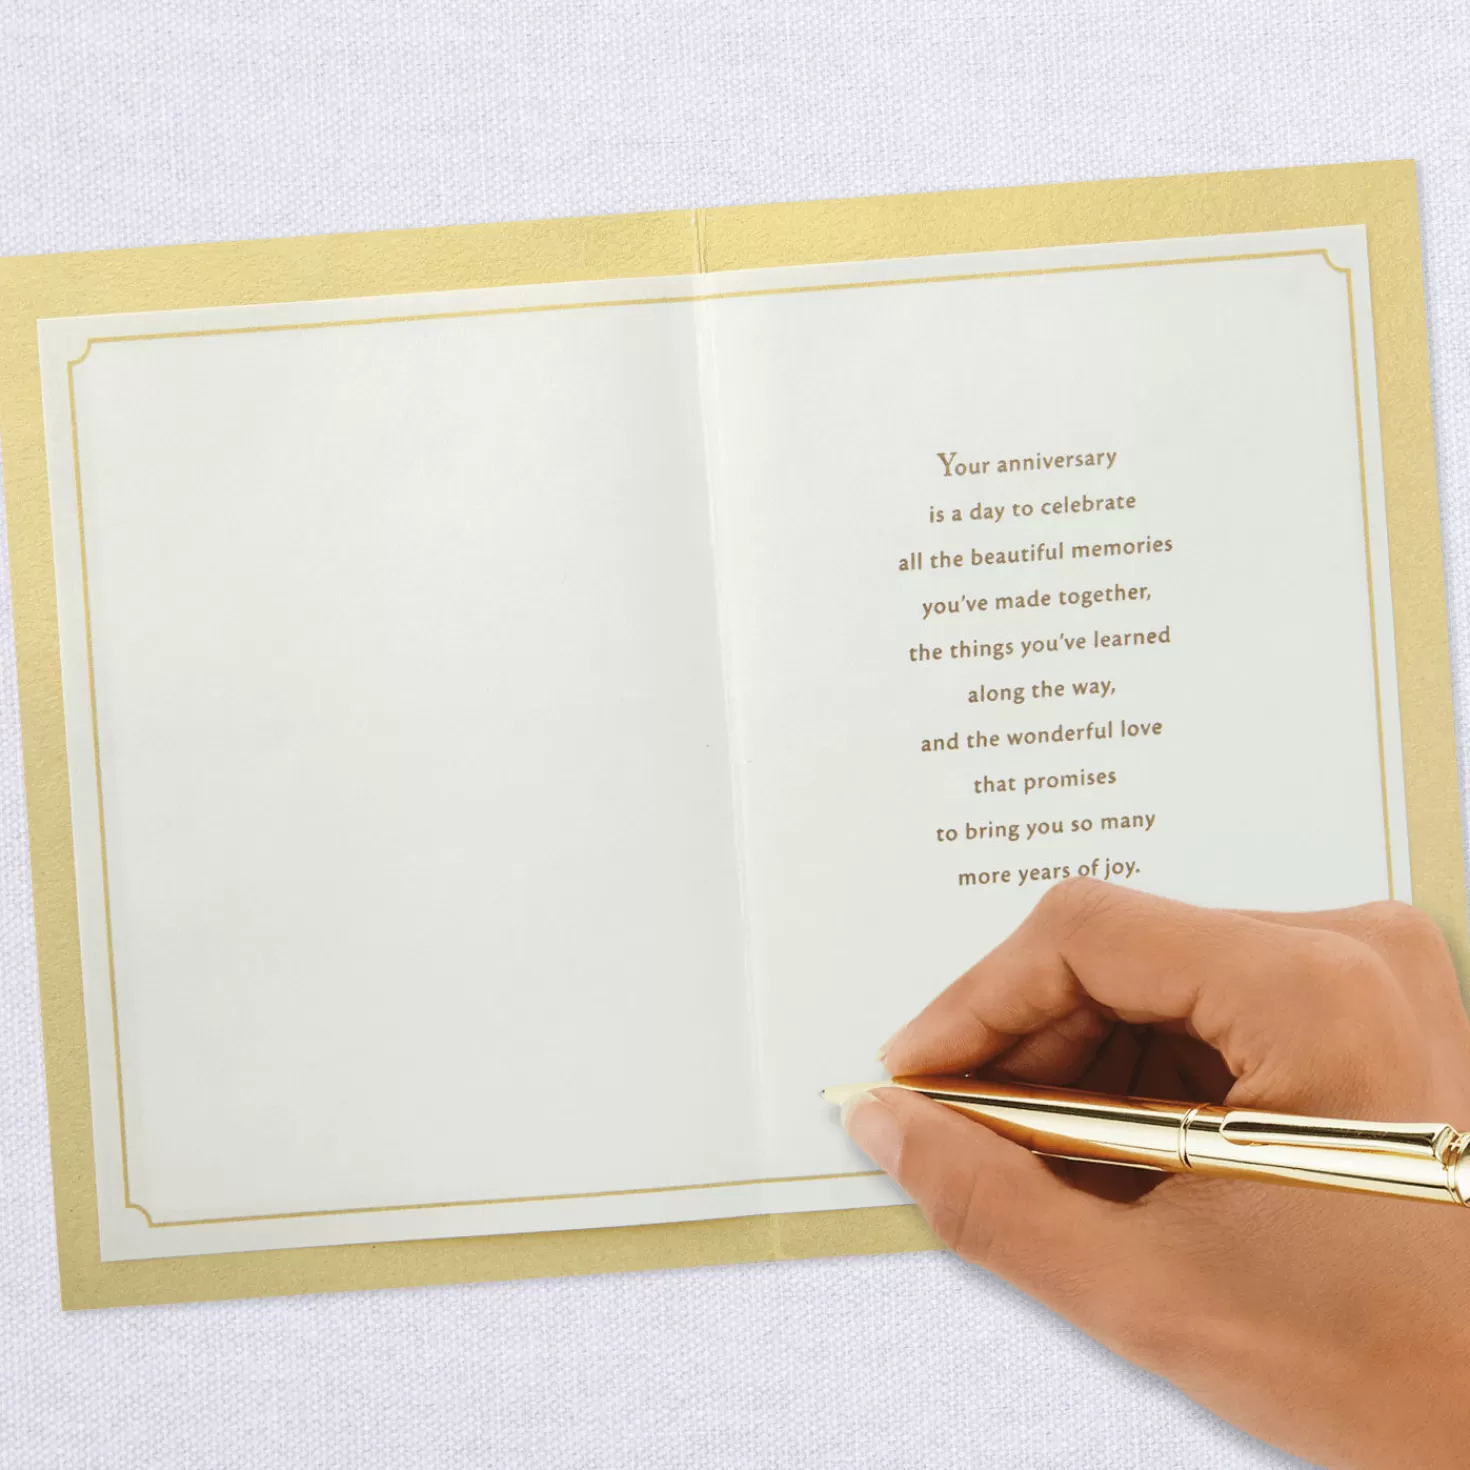 Your anniversary
is a day to celebrate
all the beautiful memories
you've made together,
the things you've learned
along the way,
and the wonderful love
that promises
to bring you so many
more years of joy.